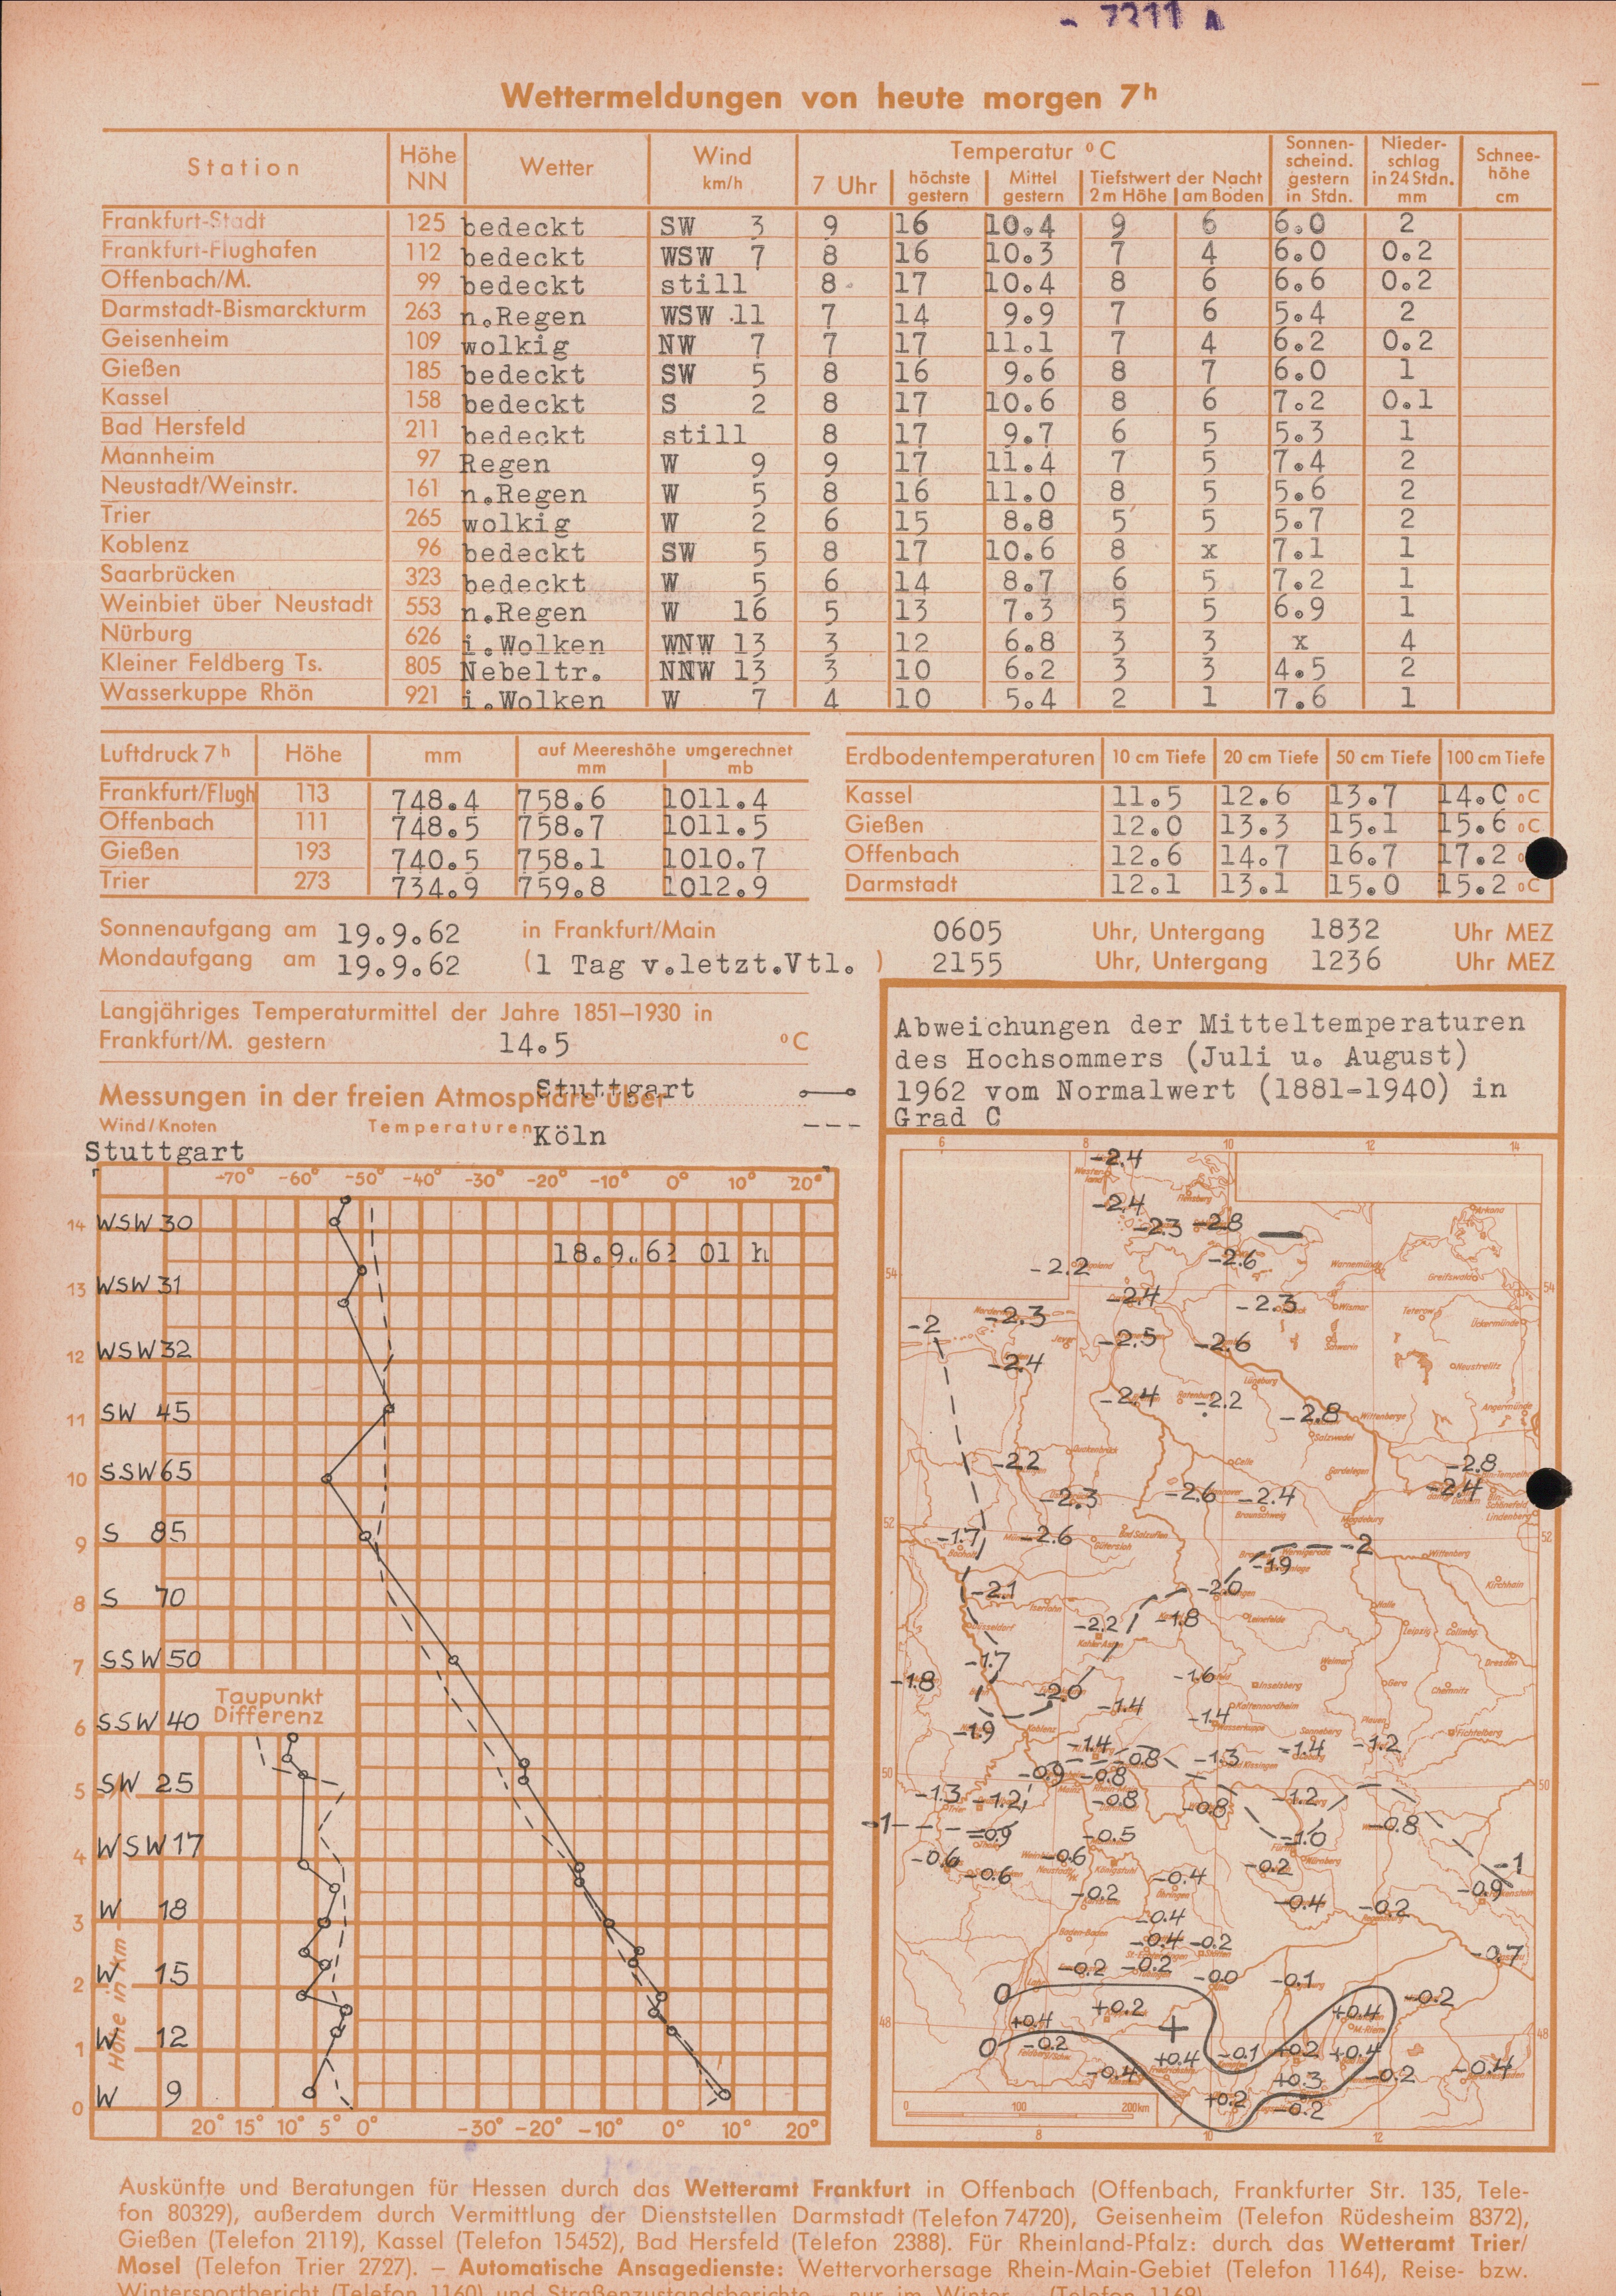 7311 A
Wettermeldungen von heute morgen 7h
Station Höhe NN Wetter Wind km/h Temperatur °C Sonnen-scheind. gestern in Stdn. Nieder-schlag in 24 Stdn. mm Schnee-höhe cm
7 Uhr höchste gestern Mittel gestern Tiefstwert der Nacht 2 m Höhe am Boden
Frankfurt-Stadt 125 bedeckt SW 3 9 16 10.4 9 6 6.0 2
Frankfurt-Flughafen 112 bedeckt WSW 7 8 16 10.3 7 4 6.0 0.2
Offenbach/M. 99 bedeckt still 8 17 10.4 8 6 6.6 0.2
Darmstadt-Bismarckturm 263 n.Regen WSW 11 7 14 9.9 7 6 5.4 2
Geisenheim 109 wolkig NW 7 7 17 11.1 7 4 6.2 0.2
Gießen 185 bedeckt SW 5 8 16 9.6 8 7 6.0 1
Kassel 158 bedeckt S 2 8 17 10.6 8 6 7.2 0.1
Bad Hersfeld 211 bedeckt still 8 17 9.7 6 5 5.3 1
Mannheim 97 Regen W 9 9 17 11.4 7 5 7.4 2
Neustadt/Weinstr. 161 n.Regen W 5 8 16 11.0 8 5 5.6 2
Trier 265 wolkig W 2 6 15 8.8 5 5 5.7 2
Koblenz 96 bedeckt SW 5 8 17 10.6 8 x 7.1 1
Saarbrücken 323 bedeckt W 5 6 14 8.7 6 5 7.2 1
Weinbiet über Neustadt 553 n.Regen W 16 5 13 7.3 5 5 6.9 1
Nürburg 626 i.Wolken WNW 13 3 12 6.8 3 3 x 4
Kleiner Feldberg Ts. 805 Nebeltr. NNW 13 3 10 6.2 3 3 4.5 2
Wasserkuppe Rhön 921 i.Wolken W 7 4 10 5.4 2 1 7.6 1
Luftdruck 7h Höhe mm auf Meereshöhe umgerechnet mm mb
Frankfurt/Flugh 113 748.4 758.6 1011.4
Offenbach 111 748.5 758.7 1011.5
Gießen 193 740.5 758.1 1010.7
Trier 273 734.9 759.8 1012.9
Erdbodentemperaturen 10 cm Tiefe 20 cm Tiefe 50 cm Tiefe 100 cm Tiefe
Kassel 11.5 12.6 13.7 14.0 °C
Gießen 12.0 13.3 15.1 15.6 °C
Offenbach 12.6 14.7 16.7 17.2
Darmstadt 12.1 13.1 15.0 15.2 °C
Sonnenaufgang am 19.9.62 in Frankfurt/Main 0605 Uhr, Untergang 1832 Uhr MEZ
Mondaufgang am 19.9.62 (1 Tag v.letzt.Vtl. ) 2155 Uhr, Untergang 1236 Uhr MEZ
Langjähriges Temperaturmittel der Jahre 1851–1930 in
Frankfurt/M. gestern 14.5 °C
Messungen in der freien Atmosphäre über Stuttgart
Wind/Knoten Temperaturen Köln
Stuttgart
-70° -60° -50° -40° -30° -20° -10° 0° 10° 20°
14 WSW 30
18.9.62 01 h
13 WSW 31
12 WSW 32
11 SW 45
10 SSW 65
9 S 85
8 S 70
7 SSW 50
Taupunkt
Differenz
6 SSW 40
5 SW 25
4 WSW 17
3 W 18
2 W 15
1 W 12
0 W 9
Höhe in km
20° 15° 10° 5° 0° -30° -20° -10° 0° 10° 20°
Abweichungen der Mitteltemperaturen
des Hochsommers (Juli u. August)
1962 vom Normalwert (1881-1940) in
Grad C
6 8 10 12 14
-2.4
-2.4
-2.3 -2.8
-2.2 -2.6
54 54
-2.4 -2.3
-2 -2.3
-2.5 -2.6
-2.4
-2.4 -2.2 -2.8
-2.2 -2.8
-2.3 -2.6 -2.4 -2.4
52 52
-1.7 -2.6 -2
-1.9
-2.1 -2.0
-2.2 -1.8
-1.7
-1.8 -2.0 -1.6
-1.4 -1.4
-1.9
-1.4 -0.8 -1.3 -1.4 -1.2
50 -0.9 -0.8 50
-1.3 -1.2 -0.8 -0.8 -1.2
-1 -0.9 -0.5 -1.0 -0.8
-0.6 -0.6 -0.6 -0.2 -1
-0.2 -0.4 -0.4 -0.2 -0.9
-0.4
-0.4 -0.2 -0.7
-0.2 -0.2 -0.0 -0.1
0 +0.2 +0.4 -0.2
48 +0.4 + 48
0 -0.2 +0.4 -0.1 +0.2 +0.4
-0.4 +0.3 -0.2 -0.4
+0.2 -0.2
0 100 200km
8 10 12
Auskünfte und Beratungen für Hessen durch das Wetteramt Frankfurt in Offenbach (Offenbach, Frankfurter Str. 135, Tele-
fon 80329), außerdem durch Vermittlung der Dienststellen Darmstadt (Telefon 74720), Geisenheim (Telefon Rüdesheim 8372),
Gießen (Telefon 2119), Kassel (Telefon 15452), Bad Hersfeld (Telefon 2388). Für Rheinland-Pfalz: durch das Wetteramt Trier/
Mosel (Telefon Trier 2727). – Automatische Ansagedienste: Wettervorhersage Rhein-Main-Gebiet (Telefon 1164), Reise- bzw.
Wintersportbericht (Telefon 1160) und Straßenzustandsberichte – nur im Winter – (Telefon 1169)